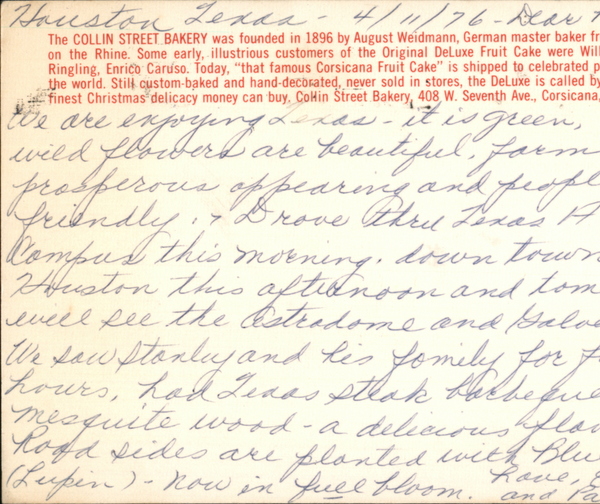 Houston Texas - 4/11/76 - Dear
The COLLIN STREET BAKERY was founded in 1896 by August Weidmann, German master baker fr
on the Rhine. Some early, illustrious customers of the Original DeLuxe Fruit Cake were Will
Ringling, Enrico Caruso. Today, "that famous Corsicana Fruit Cake" is shipped to celebrated p
the world. Still custom-baked and hand-decorated, never sold in stores, the DeLuxe is called by
finest Christmas delicacy money can buy. Collin Street Bakery, 408 W. Seventh Ave., Corsicana,
We are enjoying Texas - it is green,
wild flowers are beautiful, farm
prosperous appearing and peopl
friendly. Drove thru Texas A
Campus this morning. down town
Houston this afternoon and tom
will see the Astrodome and Galve
We saw Stanley and his family for f
hours, had Texas steak barbeque
mesquite wood - a delicious flav
Road sides are planted with Blu
(Lupin) - now in full bloom. Love,
and